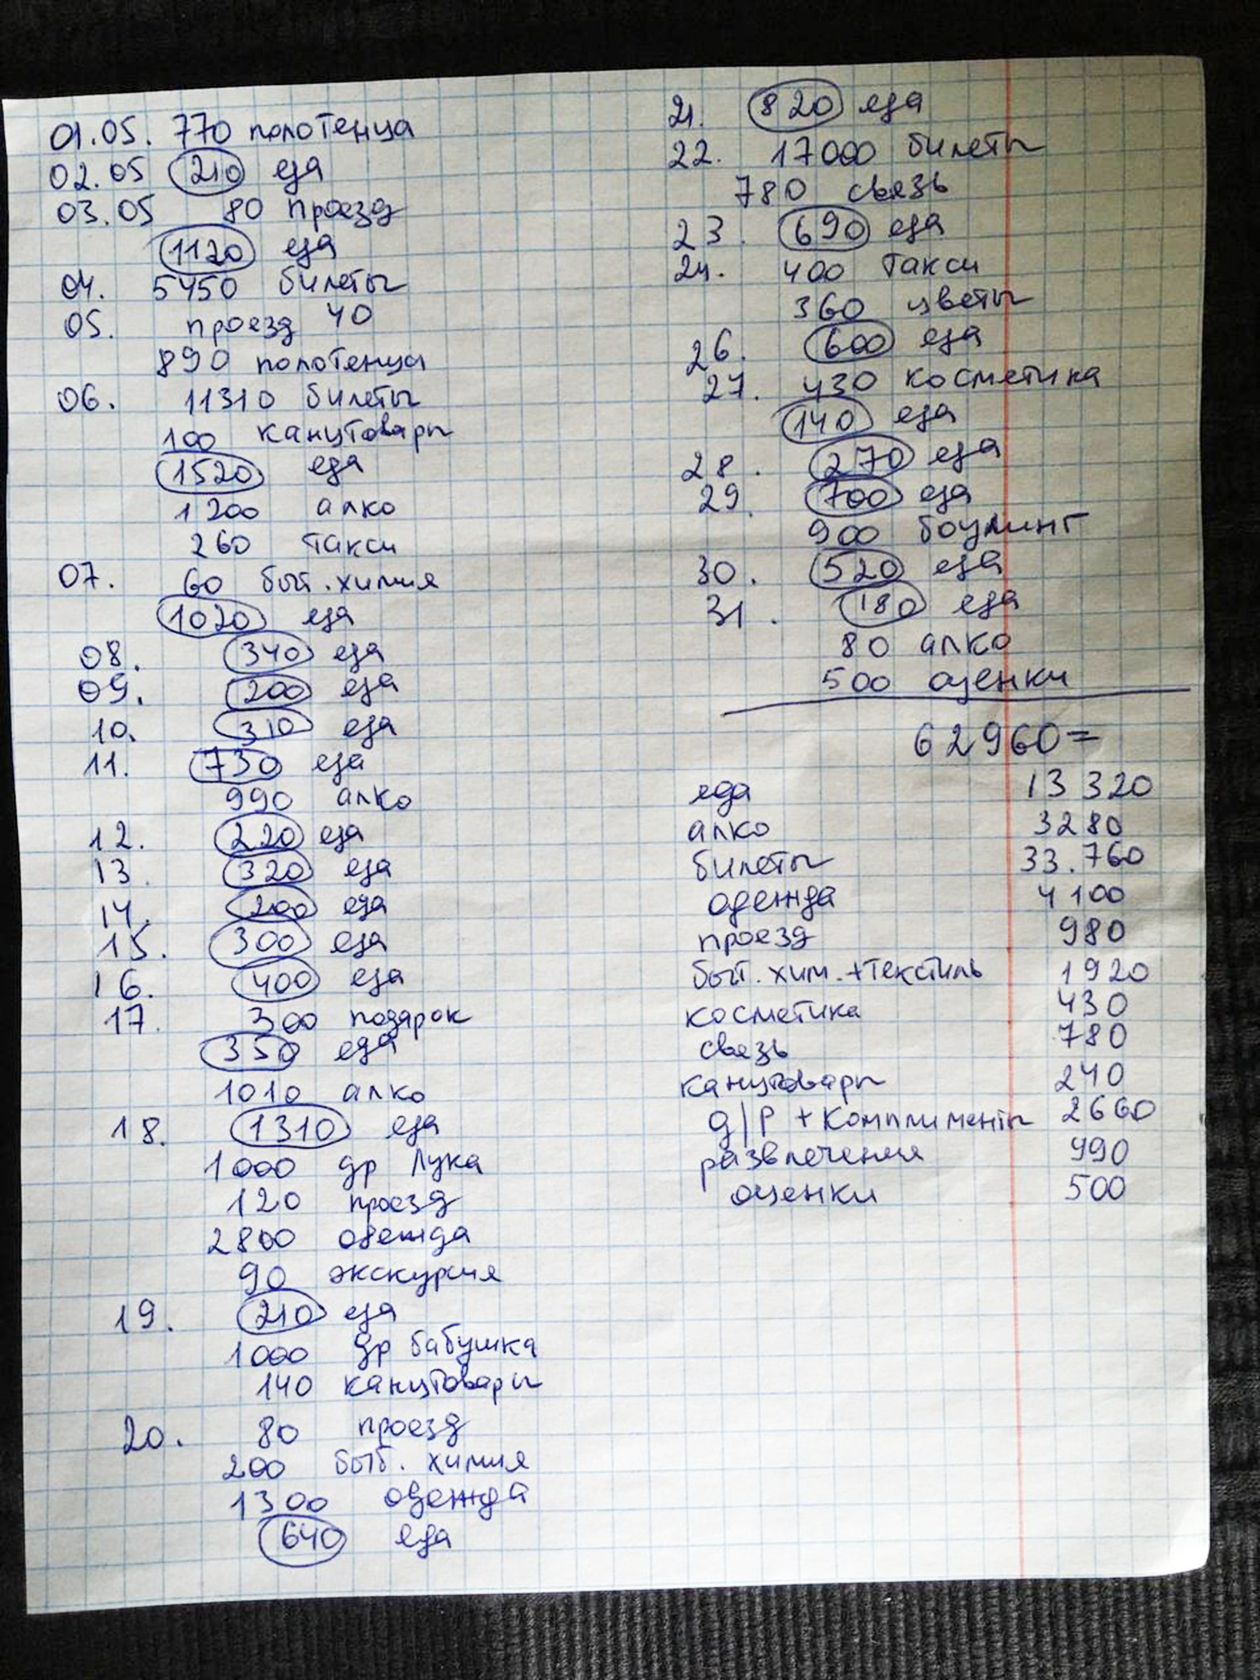 01.05. 770 полотенца
02.05 210 еда
03.05 80 проезд
1120 еда
04. 5450 билеты
05. проезд 40
890 полотенца
06. 11310 билеты
100 канцтовары
1520 еда
1200 алко
260 такси
07. 60 быт.химия
1020 еда
08. 340 еда
09. 200 еда
10. 310 еда
11. 730 еда
990 алко
12. 220 еда
13. 320 еда
14. 200 еда
15. 300 еда
16. 400 еда
17. 300 подарок
350 еда
1010 алко
18. 1310 еда
1000 др Лука
120 проезд
2800 одежда
90 экскурсия
19. 210 еда
1000 др бабушка
140 канцтовары
20. 80 проезд
200 быт. химия
1300 одежда
640 еда
21. 820 еда
22. 17000 билеты
780 связь
23. 690 еда
24. 400 такси
360 цветы
26. 600 еда
27. 430 косметика
140 еда
28. 270 еда
29. 700 еда
900 боулинг
30. 520 еда
31. 180 еда
80 алко
500 оценки
62960=
еда 13 320
алко 3280
билеты 33.760
одежда 4100
проезд 980
быт. хим.+текстиль 1920
косметика 430
связь 780
канцтовары 240
д/р + комплименты 2660
развлечения 990
оценки 500